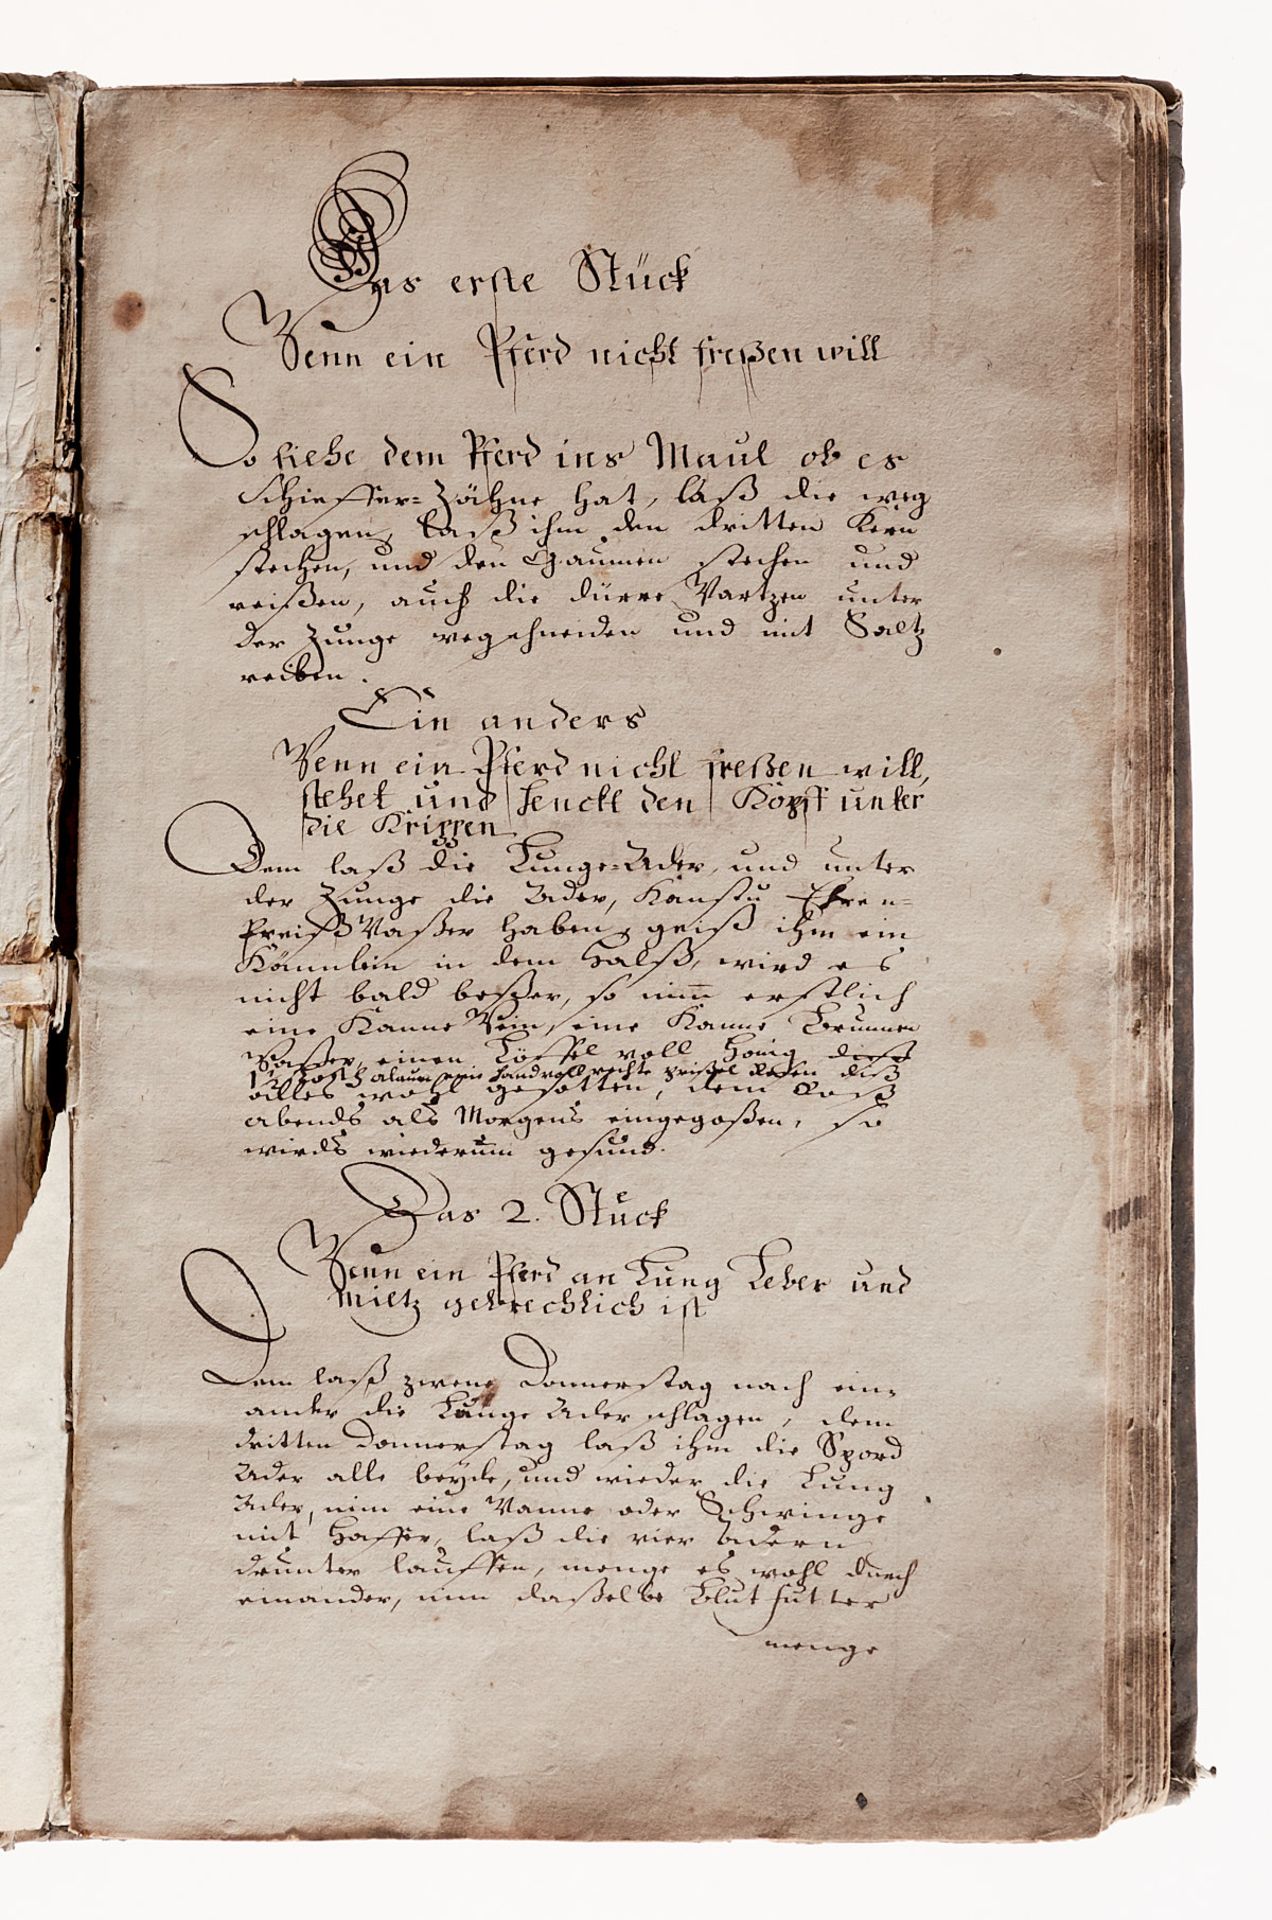 Das erste Stück
Wenn ein Pferd nicht freßen will
So siehe dem Pferd ins Maul ob es
Schieffer=Zähne hat, laß die weg
schlagen, laß ihm den dritten Kern
stechen, und den Gaumen stechen und
reißen, auch die dürre Wartzen unter
der Zunge wegschneiden und mit Saltz
reiben.
Ein anders
Wenn ein Pferd nicht freßen will,
stehet und henckt den Kopff unter
die Krippen
Dem laß die Lunge=Ader, und unter
der Zunge die Ader, Kanstu Ehren=
Preiß Waßer haben, geiß ihm ein
Kännlein in dem Halß, wird es
nicht bald beßer, so nim̄ erstlich
eine Kanne Wein, eine Kanne Brunnen
Waßer, einen Löffel voll Honig
1½ alaun eine Handvoll diß
alles wohl gesotten, dem Roß
abends als Morgens eingegoßen, so
wirds wiederum gesund.
Das 2. Stuck
Wenn ein Pferd an Lung Leber und
Miltz gebrechlich ist
Dem laß zwene Donnerstag nach ein=
ander die Lunge Ader schlagen, dem
dritten Donnerstag laß ihm die Spord
Ader alle beyde, und wieder die Lung
Ader, nim eine Wanne oder Schwinge
mit Haffer, laß die vier Adern
drunter lauffen, menge es wohl durch
einander, nim daßelbe Blut futter
menge